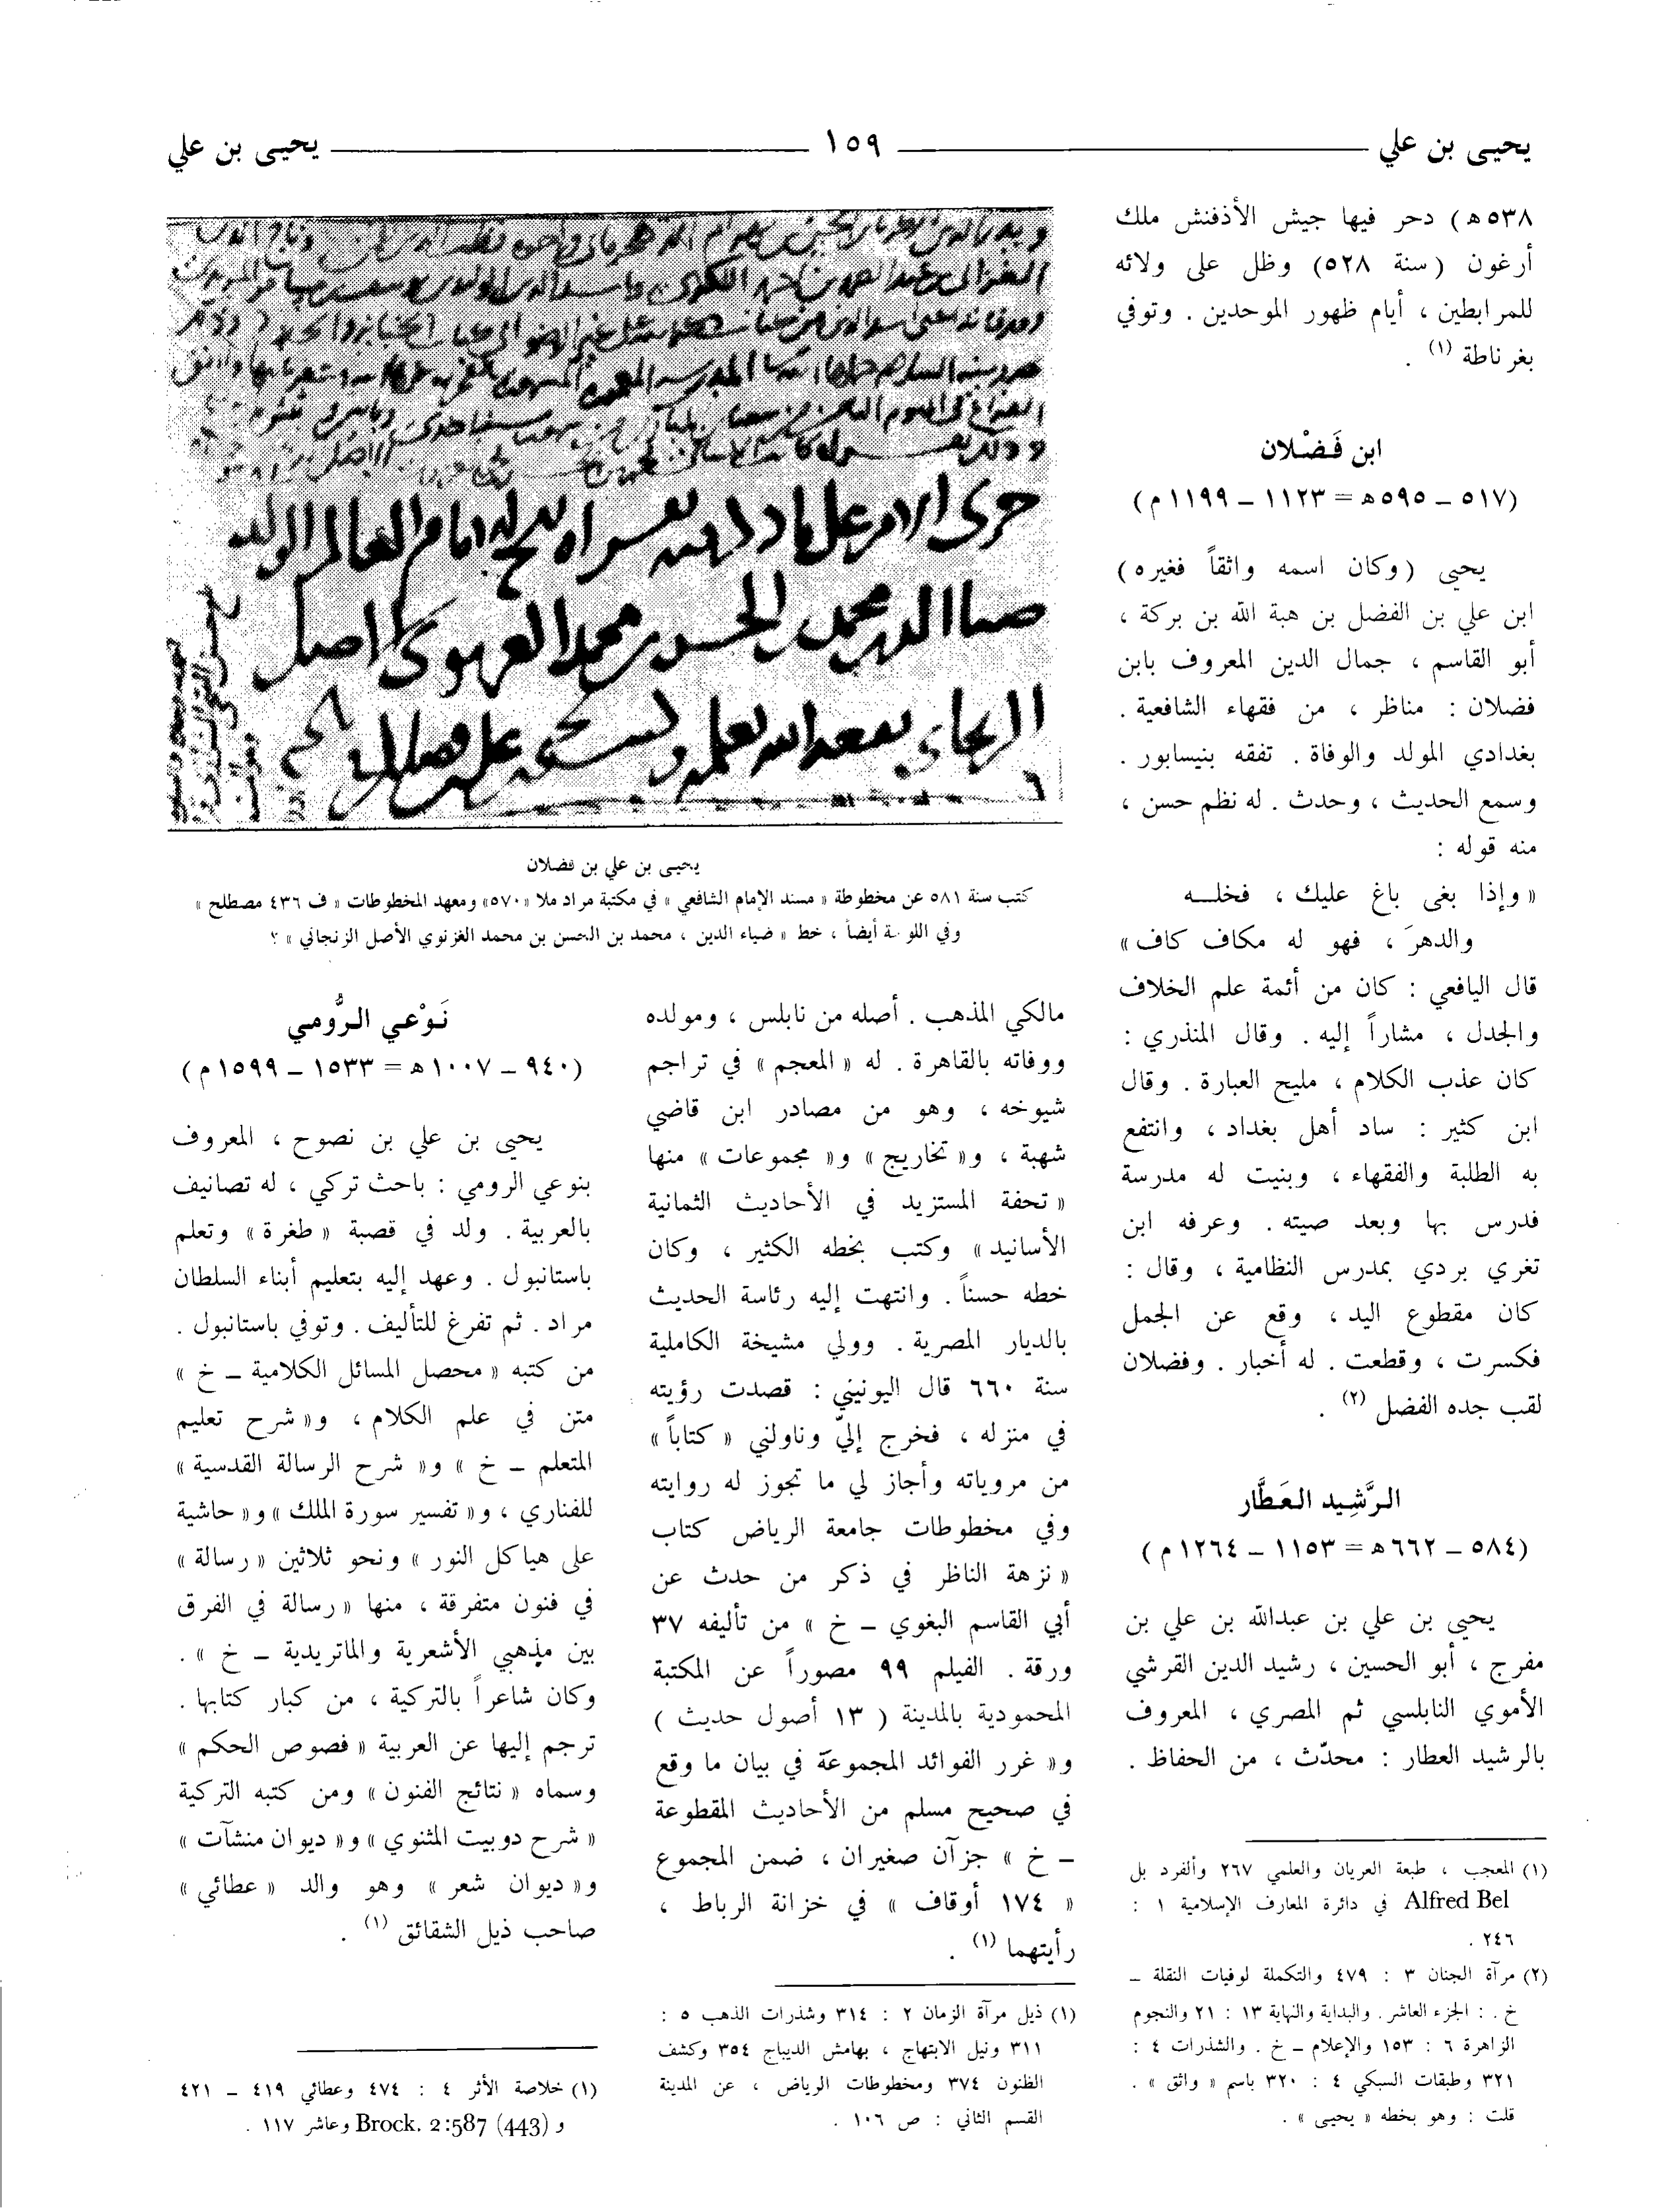 يحيى بن علي ١٥٩ يحيى بن علي
٥٣٨ ه‍) دحر فيها جيش الأذفنش ملك
أرغون (سنة ٥٢٨) وظل على ولائه
للمرابطين ، أيام ظهور الموحدين . وتوفي
بغرناطة (١) .
ابن فَضْلان
(٥١٧ ــ ٥٩٥ ه‍ = ١١٢٣ ــ ١١٩٩ م)
يحيى (وكان اسمه واثقاً فغيره)
ابن علي بن الفضل بن هبة الله بن بركة ،
أبو القاسم ، جمال الدين المعروف بابن
فضلان : مناظر ، من فقهاء الشافعية .
بغدادي المولد والوفاة . تفقه بنيسابور .
وسمع الحديث ، وحدث . له نظم حسن ،
منه قوله :
« وإذا بغى باغ عليك ، فخلــه
والدهرَ ، فهو له مكاف كاف »
قال اليافعي : كان من أئمة علم الخلاف
والجدل ، مشاراً إليه . وقال المنذري :
كان عذب الكلام ، مليح العبارة . وقال
ابن كثير : ساد أهل بغداد ، وانتفع
به الطلبة والفقهاء ، وبنيت له مدرسة
فدرس بها وبعد صيته . وعرفه ابن
تغري بردي بمدرس النظامية ، وقال :
كان مقطوع اليد ، وقع عن الجمل
فكسرت ، وقطعت . له أخبار . وفضلان
لقب جده الفضل (٢) .
الرَّشِيد العَطَّار
(٥٨٤ ــ ٦٦٢ ه‍ = ١١٥٣ ــ ١٢٦٤ م)
يحيى بن علي بن عبدالله بن علي بن
مفرج ، أبو الحسين ، رشيد الدين القرشي
الأموي النابلسي ثم المصري ، المعروف
بالرشيد العطار : محدّث ، من الحفاظ .
(١) المعجب ، طبعة العريان والعلمي ٢٦٧ وألفرد بل
Alfred Bel في دائرة المعارف الإسلامية ١ :
٢٤٦ .
(٢) مرآة الجنان ٣ : ٤٧٩ والتكملة لوفيات النقلة ــ
خ . : الجزء العاشر . والبداية والنهاية ١٣ : ٢١ والنجوم
الزاهرة ٦ : ١٥٣ والإعلام ــ خ . والشذرات ٤ :
٣٢١ وطبقات السبكي ٤ : ٣٢٠ باسم « واثق » .
قلت : وهو بخطه « يحيى » .
يحيى بن علي بن فضلان
كتب سنة ٥٨١ عن مخطوطة « مسند الإمام الشافعي » في مكتبة مراد ملا «٥٧٠» ومعهد المخطوطات « ف ٤٣٦ مصطلح »
وفي اللوحة أيضاً ، خط « ضياء الدين ، محمد بن الحسن بن محمد الغزنوي الأصل الزنجاني » ؟
مالكي المذهب . أصله من نابلس ، ومولده
ووفاته بالقاهرة . له « المعجم » في تراجم
شيوخه ، وهو من مصادر ابن قاضي
شهبة ، و« تخاريج » و« مجموعات » منها
« تحفة المستزيد في الأحاديث الثمانية
الأسانيد » وكتب بخطه الكثير ، وكان
خطه حسناً . وانتهت إليه رئاسة الحديث
بالديار المصرية . وولي مشيخة الكاملية
سنة ٦٦٠ قال اليونيني : قصدت رؤيته
في منزله ، فخرج إليّ وناولني « كتاباً »
من مروياته وأجاز لي ما تجوز له روايته
وفي مخطوطات جامعة الرياض كتاب
« نزهة الناظر في ذكر من حدث عن
أبي القاسم البغوي ــ خ » من تأليفه ٣٧
ورقة . الفيلم ٩٩ مصوراً عن المكتبة
المحمودية بالمدينة ( ١٣ أصول حديث )
و« غرر الفوائد المجموعة في بيان ما وقع
في صحيح مسلم من الأحاديث المقطوعة
ــ خ » جزآن صغيران ، ضمن المجموع
« ١٧٤ أوقاف » في خزانة الرباط ،
رأيتهما (١) .
(١) ذيل مرآة الزمان ٢ : ٣١٤ وشذرات الذهب ٥ :
٣١١ ونيل الابتهاج ، بهامش الديباج ٣٥٤ وكشف
الظنون ٣٧٤ ومخطوطات الرياض ، عن المدينة
القسم الثاني : ص ١٠٦ .
نَوْعي الرُّومي
(٩٤٠ ــ ١٠٠٧ ه‍ = ١٥٣٣ ــ ١٥٩٩ م)
يحيى بن علي بن نصوح ، المعروف
بنوعي الرومي : باحث تركي ، له تصانيف
بالعربية . ولد في قصبة « طغرة » وتعلم
باستانبول . وعهد إليه بتعليم أبناء السلطان
مراد . ثم تفرغ للتأليف . وتوفي باستانبول .
من كتبه « محصل المسائل الكلامية ــ خ »
متن في علم الكلام ، و« شرح تعليم
المتعلم ــ خ » و« شرح الرسالة القدسية »
للفناري ، و« تفسير سورة الملك » و« حاشية
على هياكل النور » ونحو ثلاثين « رسالة »
في فنون متفرقة ، منها « رسالة في الفرق
بين مذهبي الأشعرية والماتريدية ــ خ » .
وكان شاعراً بالتركية ، من كبار كتابها .
ترجم إليها عن العربية « فصوص الحكم »
وسماه « نتائج الفنون » ومن كتبه التركية
« شرح دوبيت المثنوي » و« ديوان منشآت »
و« ديوان شعر » وهو والد « عطائي »
صاحب ذيل الشقائق (١) .
(١) خلاصة الأثر ٤ : ٤٧٤ وعطائي ٤١٩ ــ ٤٢١
و Brock. 2:587 (443) وعاشر ١١٧ .